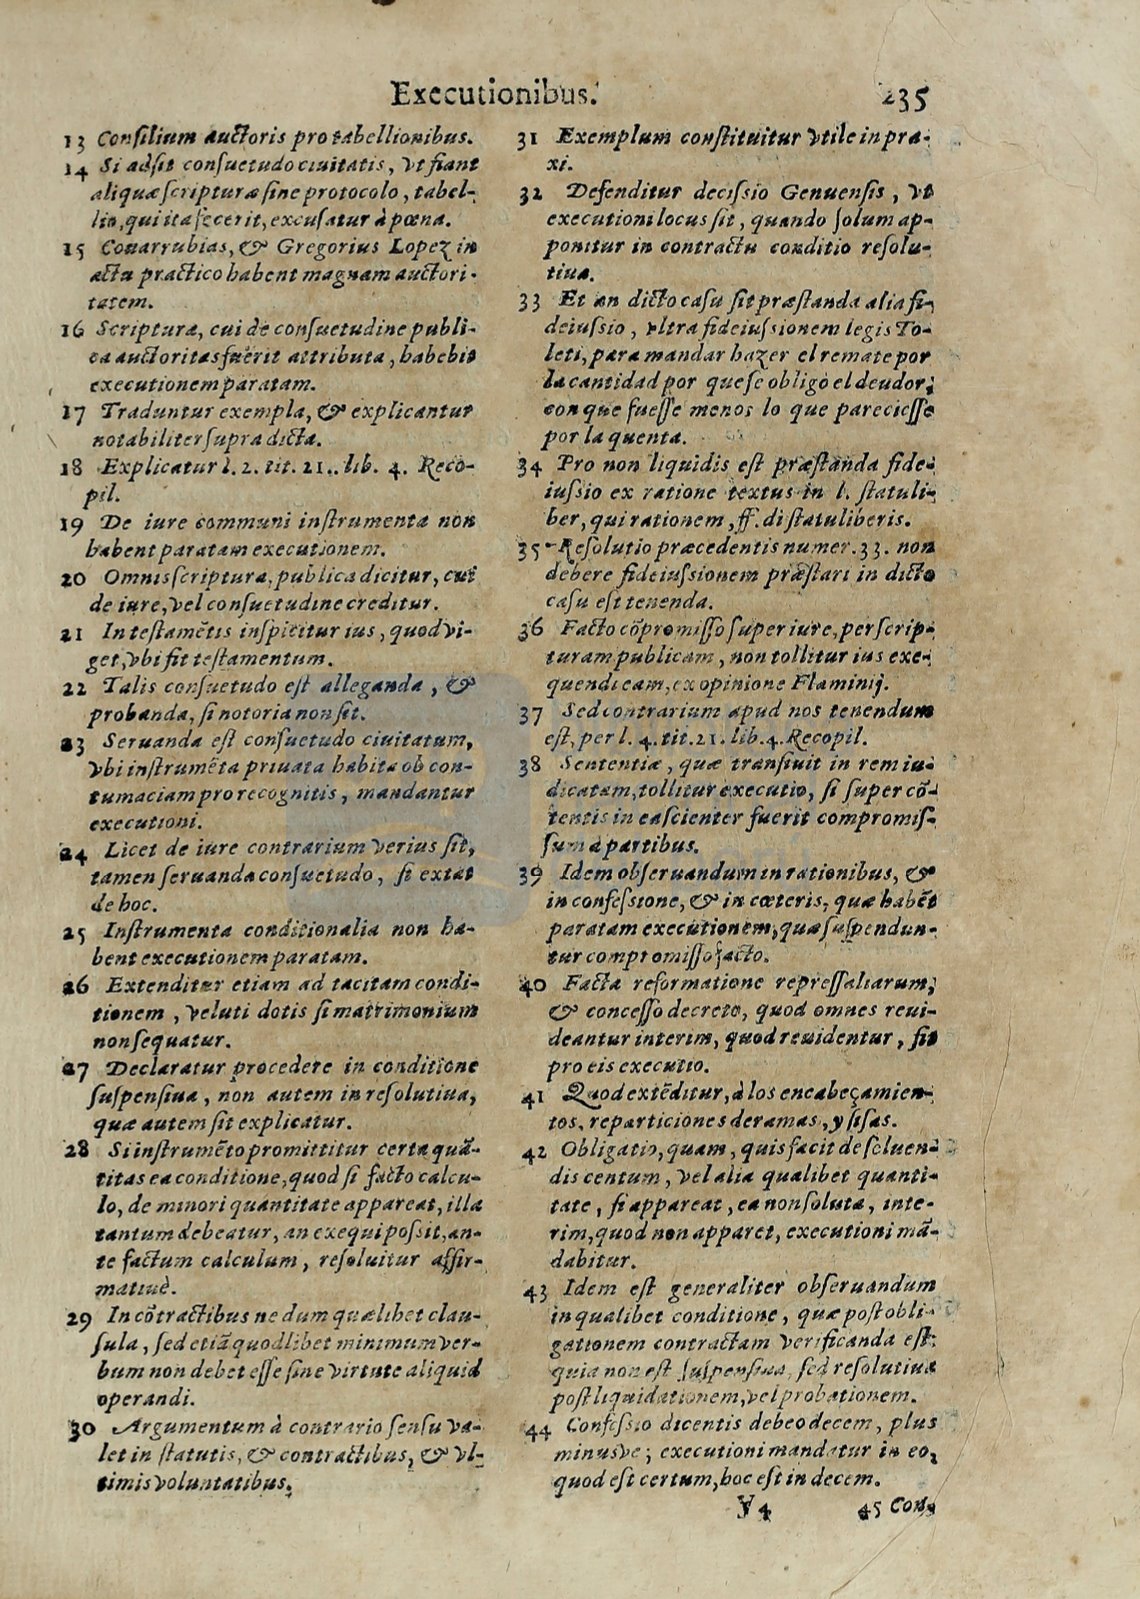 Executionibus. 235
13 Conſilium auctoris pro tabellionibus.
14 Si adſit conſuetudo ciuitatis, vt fiant
aliquæ ſcripturæ ſine protocolo, tabel-
lio, qui ita fecerit, excuſatur à pœna.
15 Couarrubias, & Gregorius Lopez in
actu practico habent magnam auctori-
tatem.
16 Scriptura, cui de conſuetudine publi-
ca auctoritas fuerit attributa, habebit
executionem paratam.
17 Traduntur exempla, & explicantur
notabiliter ſupra dicta.
18 Explicatur l. 2. tit. 21.. lib. 4. Reco-
pil.
19 De iure communi inſtrumenta non
habent paratam executionem.
20 Omnis ſcriptura, publica dicitur, cui
de iure, vel conſuetudine creditur.
21 In teſtamētis inſpicitur ius, quod vi-
get, vbi fit teſtamentum.
22 Talis conſuetudo eſt alleganda, &
probanda, ſi notoria non ſit.
23 Seruanda eſt conſuetudo ciuitatum,
vbi inſtrumēta priuata habita ob con-
tumaciam pro recognitis, mandantur
executioni.
24 Licet de iure contrarium verius ſit,
tamen ſeruanda conſuetudo, ſi extat
de hoc.
25 Inſtrumenta conditionalia non ha-
bent executionem paratam.
26 Extenditur etiam ad tacitam condi-
tionem, veluti dotis ſi matrimonium
non ſequatur.
27 Declaratur procedere in conditione
ſuſpenſiua, non autem in reſolutiua,
quæ autem ſit explicatur.
28 Si inſtrumēto promittitur certa quā-
titas ea conditione, quod ſi facto calcu-
lo, de minori quantitate appareat, illa
tantum debeatur, an exequi poſsit, an-
te factum calculum, reſoluitur affir-
matiuè.
29 In cōtractibus ne dum quælibet clau-
ſula, ſed etiā quodlibet minimum ver-
bum non debet eſſe ſine virtute aliquid
operandi.
30 Argumentum à contrario ſenſu va-
let in ſtatutis, & contractibus, & vl-
timis voluntatibus.
31 Exemplum conſtituitur vtile in pra-
xi.
32 Defenditur deciſsio Genuenſis, vt
executioni locus ſit, quando ſolum ap-
ponitur in contractu conditio reſolu-
tiua.
33 Et an dicto caſu ſit præſtanda alia fi-
deiuſsio, vltra fideiuſsionem legis To-
leti, para mandar hazer el remate por
la cantidad por que ſe obligò el deudor;
con que fueſſe menos lo que parecieſſe
por la quenta.
34 Pro non liquidis eſt præſtanda fide-
iuſsio ex ratione textus in l. ſtatuli-
ber, qui rationem, ff. di ſtatuliberis.
35 Reſolutio præcedentis numer. 33. non
debere fideiuſsionem præſtari in dicto
caſu eſt tenenda.
36 Facto cōpromiſſo ſuper iure, per ſcrip-
turam publicam, non tollitur ius exe-
quendi eam, ex opinione Flaminij.
37 Sed contrarium apud nos tenendum
eſt, per l. 4. tit. 21. lib. 4. Recopil.
38 Sententiæ, quæ tranſiuit in rem iu-
dicatam, tollitur executio, ſi ſuper cō-
tentis in ea ſcienter fuerit compromiſ-
ſum à partibus.
39 Idem obſeruandum in rationibus, &
in confeſsione, & in cœteris, quæ habēt
paratam executionem, quæ ſuſpendun-
tur compromiſſo facto.
40 Facta reformatione repreſſaliarum;
& conceſſo decreto, quod omnes reui-
deantur interim, quod reuidentur, fit
pro eis executio.
41 Quod extēditur, à los encabeçamien-
tos, reparticiones deramas, y ſiſas.
42 Obligatio, quam, quis facit de ſoluen-
dis centum, vel alia qualibet quanti-
tate, ſi appareat, ea non ſoluta, inte-
rim, quod non apparet, executioni mā-
dabitur.
43 Idem eſt generaliter obſeruandum
in qualibet conditione, quæ poſt obli-
gationem contractam verificanda eſt:
quia non eſt ſuſpenſiua, ſed reſolutiua
poſt liquidationem, vel probationem.
44 Confeſsio dicentis debeo decem, plus
minusve; executioni mandatur in eo,
quod eſt certum, hoc eſt in decem.
V 4 45 Con-